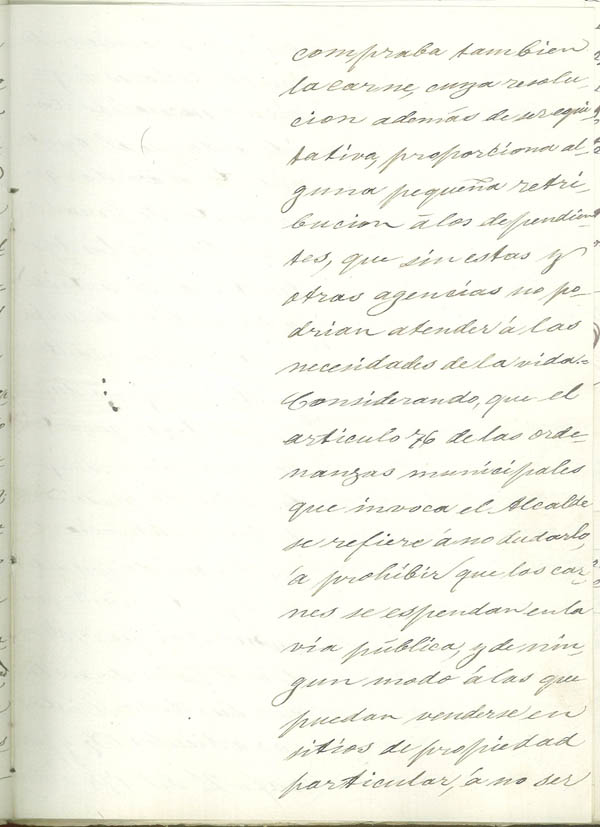 compraba tambien
la carne, cuya resolu-
cion además de ser equi-
tativa, proporciona al-
guna pequeña retri-
bucion á los dependien-
tes, que sin estas y
otras agencias no po-
drian atender á las
necesidades de la vida.=
Considerando, que el
articulo 76 de las orde-
nanzas municipales
que invoca el Alcalde
se refiere á no dudarlo,
á prohibir que las car-
nes se espendan en la
via pública, y de nin-
gun modo á las que
puedan venderse en
sitios de propiedad
particular, á no ser